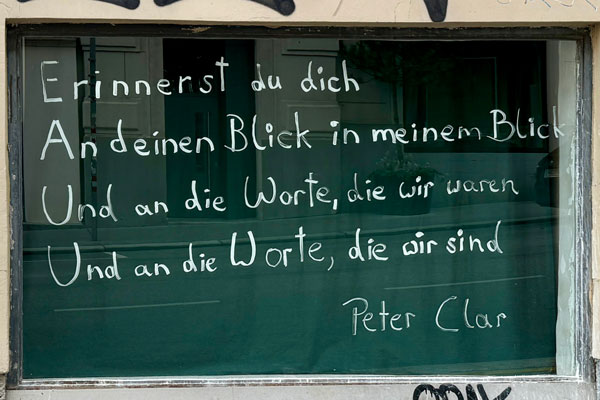 Erinnerst du dich
An deinen Blick in meinem Blick
Und an die Worte, die wir waren
Und an die Worte, die wir sind
Peter Clar